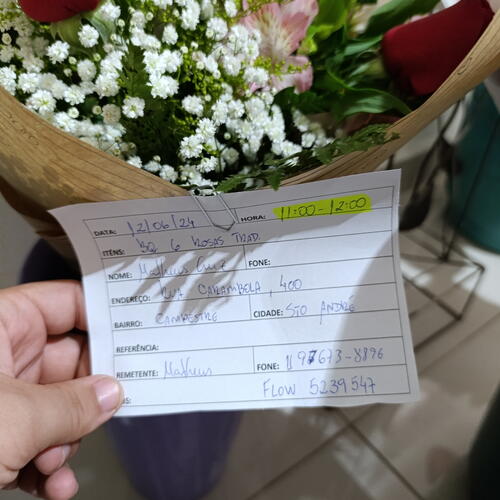 DATA: 12/06/24 HORA: 11:00 - 12:00
ITÉNS: BQ 6 ROSAS TRAD.
NOME: Matheus Cruz FONE:
ENDEREÇO: RUA CARAMBOLA, 400
BAIRRO: CAMPESTRE CIDADE: STO ANDRÉ
REFERÊNCIA:
REMETENTE: Matheus FONE: 11 97673-8896
FLOW 5239547